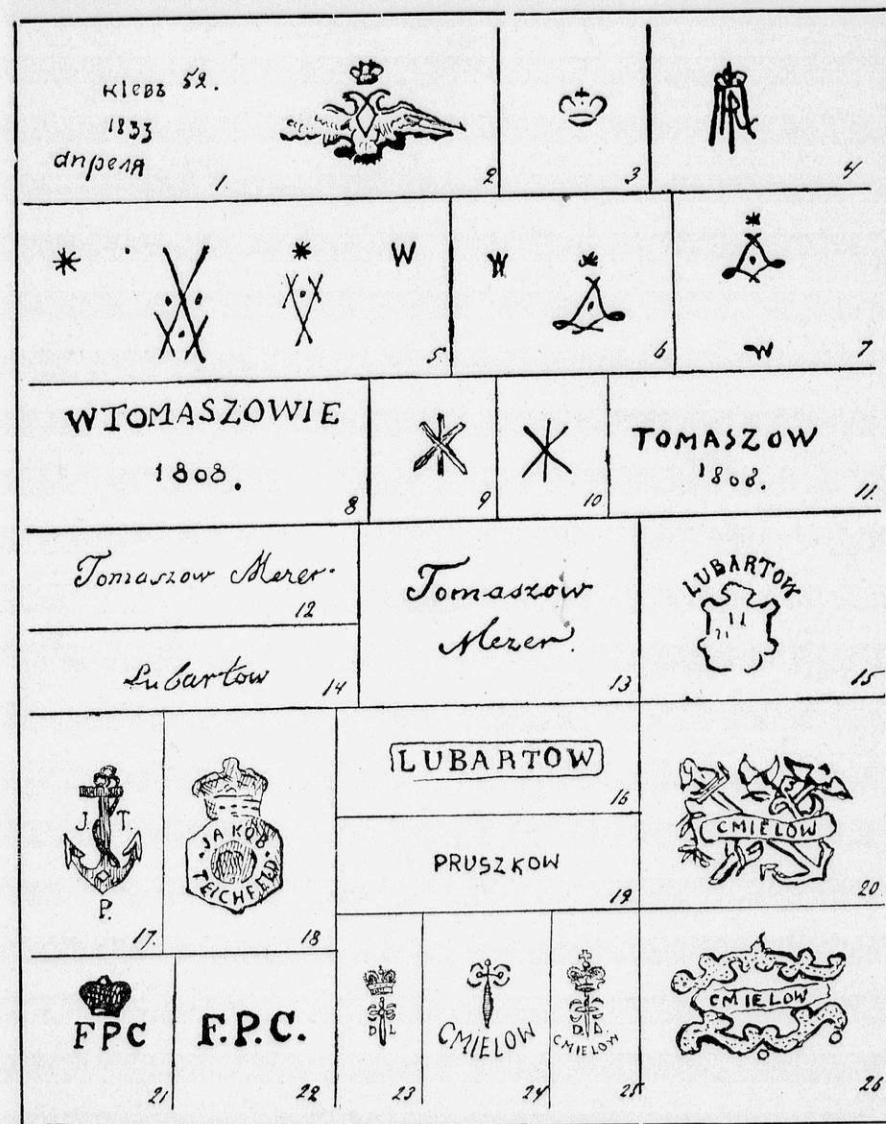 кіевъ 52.
1833
апреля
1
2
3
4
W
5
W
6
W
7
WTOMASZOWIE
1808.
8
9
10
TOMASZOW
1808.
11.
Tomaszow Mezer.
12
Tomaszow
Mezer.
13
Lubartow
14
LUBARTOW
15
LUBARTOW
16
J. T.
P.
17.
JAKÓB
TEICHFELD
18
PRUSZKOW
19
CMIELOW
20.
FPC
21
F.P.C.
22
D L
23
CMIELOW
24
D. D.
CMIELOW
25
CMIELOW
26